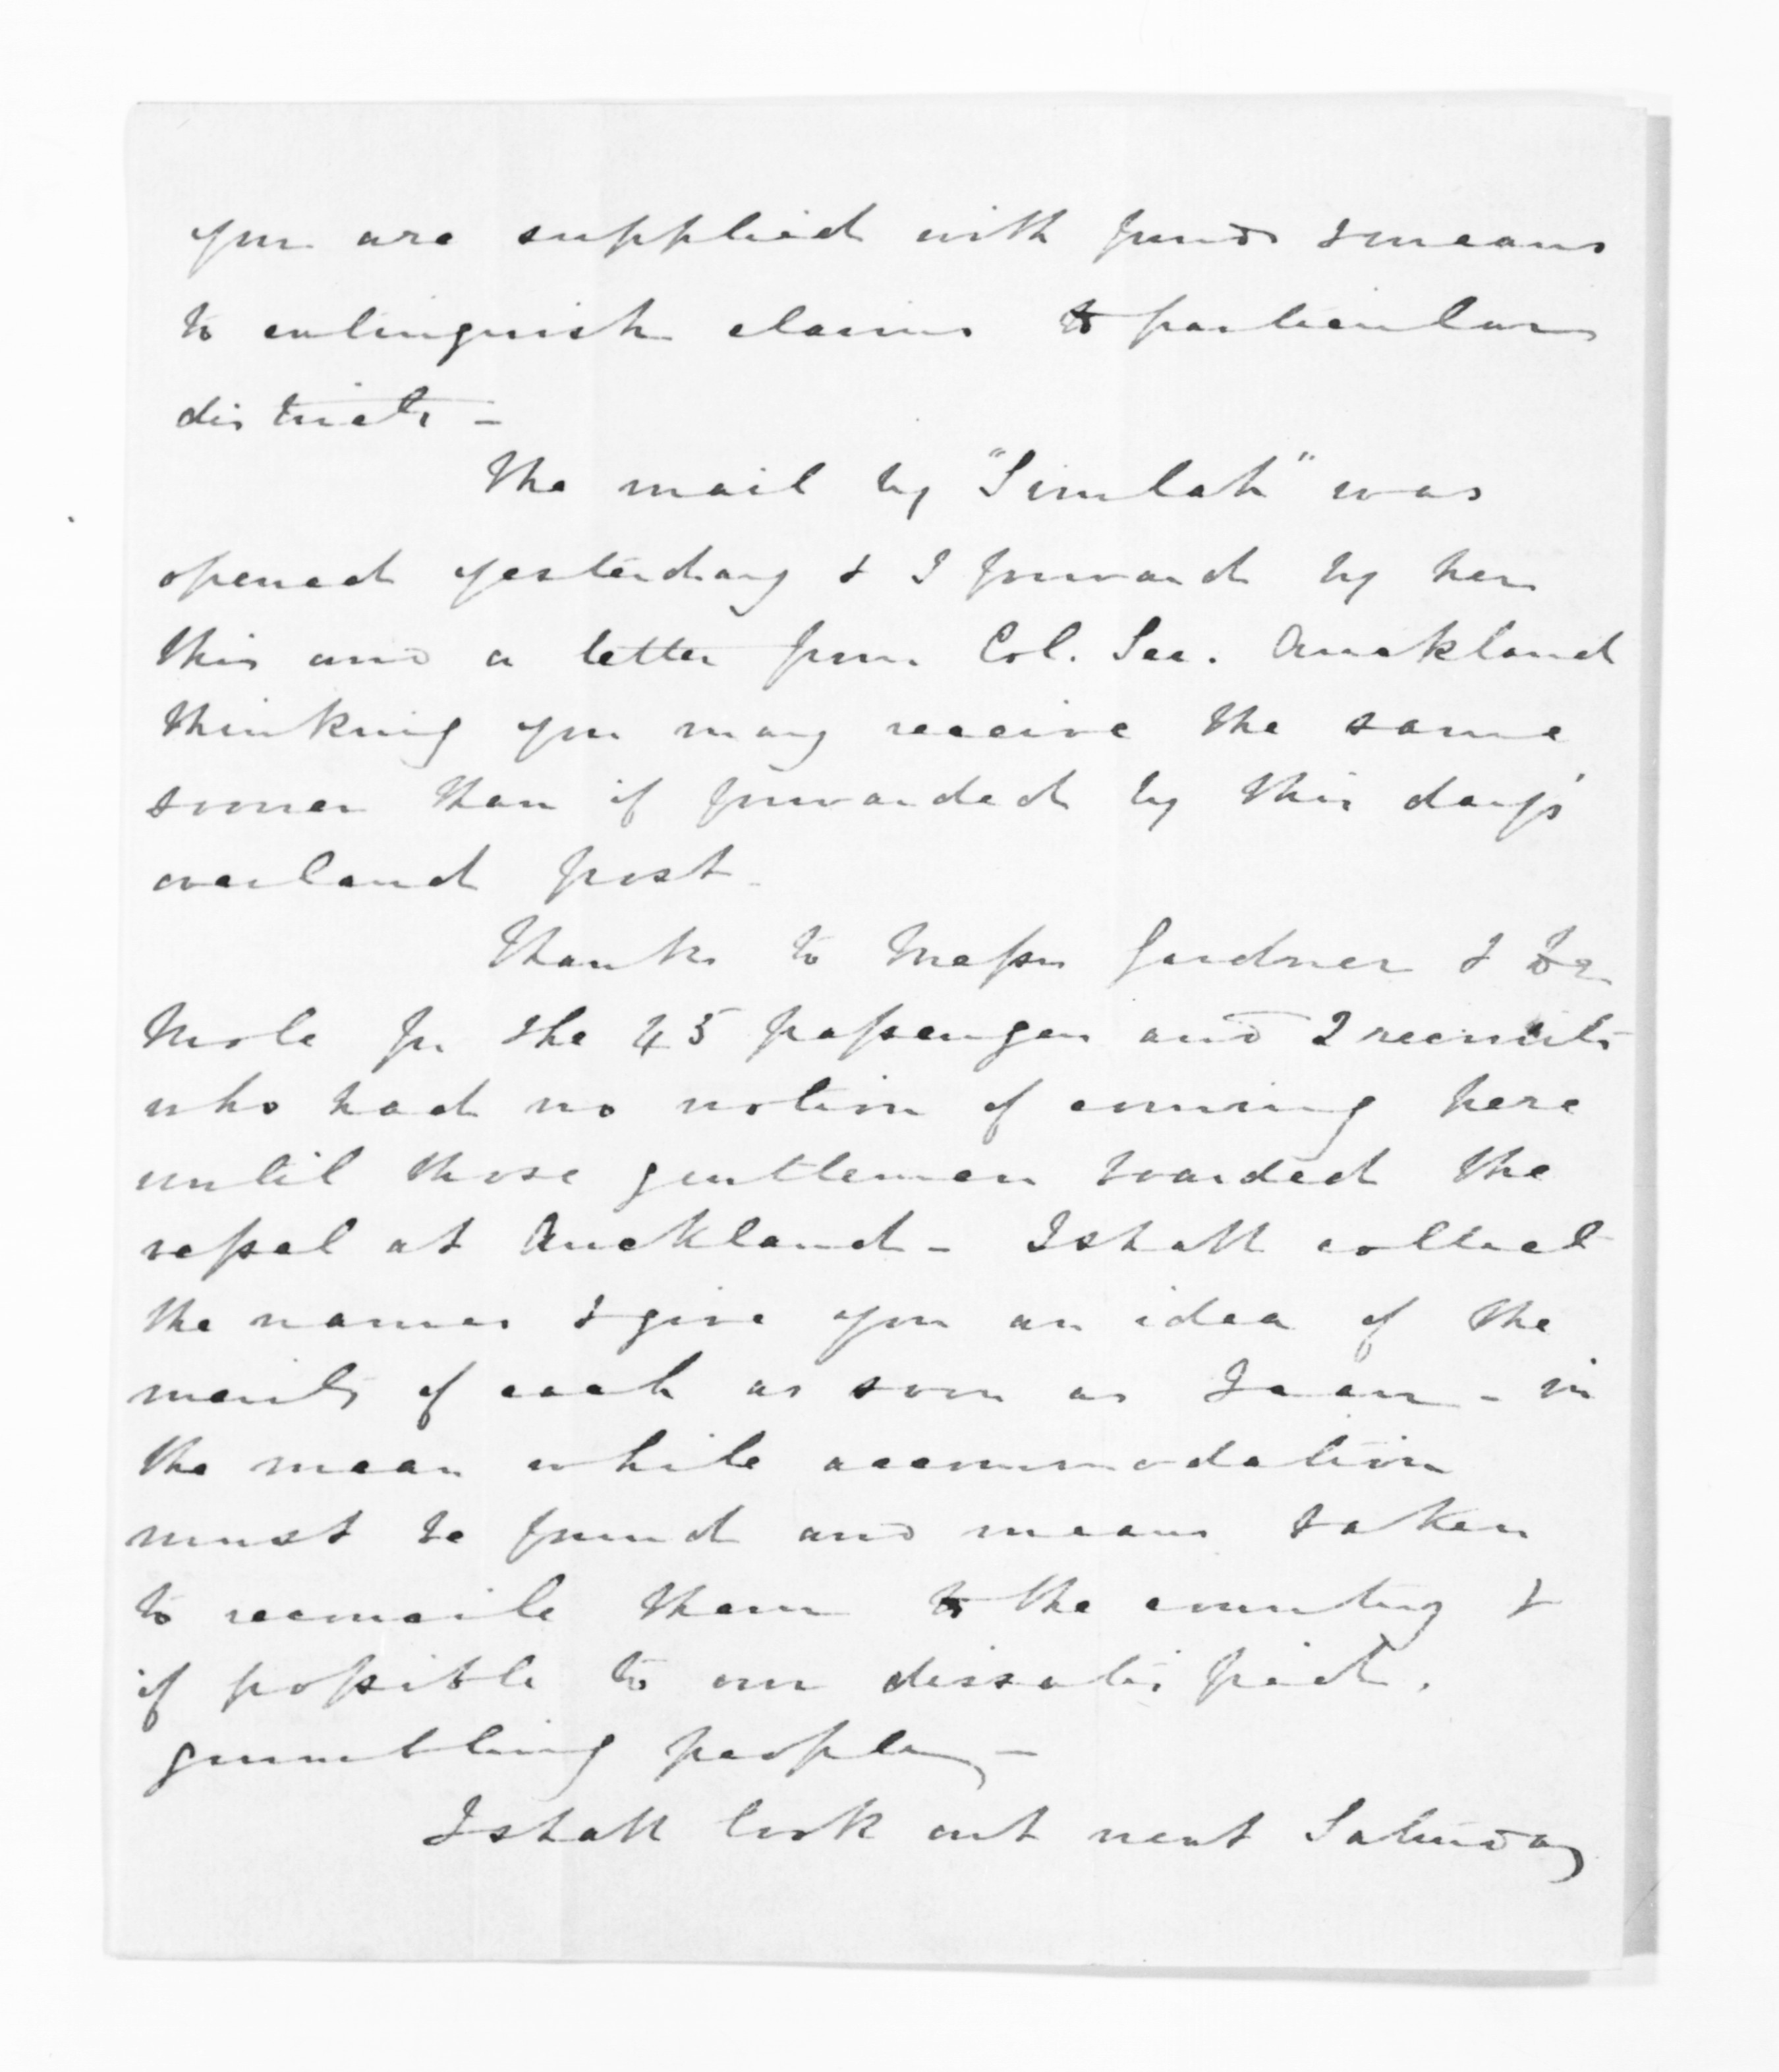 you are supplied with funds & means
to extinguish claims to particular
districts -
The mail by "Simlah" was
opened yesterday & I forward by her
this and a letter from Col. Sec. Auckland
thinking you may receive the same
sooner than if forwarded by this day's
overland post -
Thanks to Messrs Gardner & de
Mole for the 45 passengers and 2 recruits
who had no notion of coming here
until those gentlemen boarded the
vessel at Auckland - I shall collect
the names & give you an idea of the
merits of each as soon as I can - in
the mean while accommodation
must be found and means taken
to reconcile them to the country &
if possible to our dissatisfied,
grumbling people, -
I shall look out next Saturday